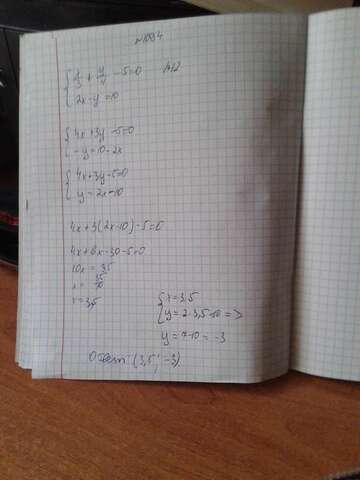 №1094
{ x/3 + y/4 - 5 = 0 | · 12
{ 2x - y = 10
{ 4x + 3y - 5 = 0
{ -y = 10 - 2x
{ 4x + 3y - 5 = 0
{ y = 2x - 10
4x + 3(2x - 10) - 5 = 0
4x + 6x - 30 - 5 = 0
10x = 35
x = 35/10
x = 3,5
{ x = 3,5
{ y = 2 · 3,5 - 10 =>
y = 7 - 10 = -3
Ответ (3,5; -3)